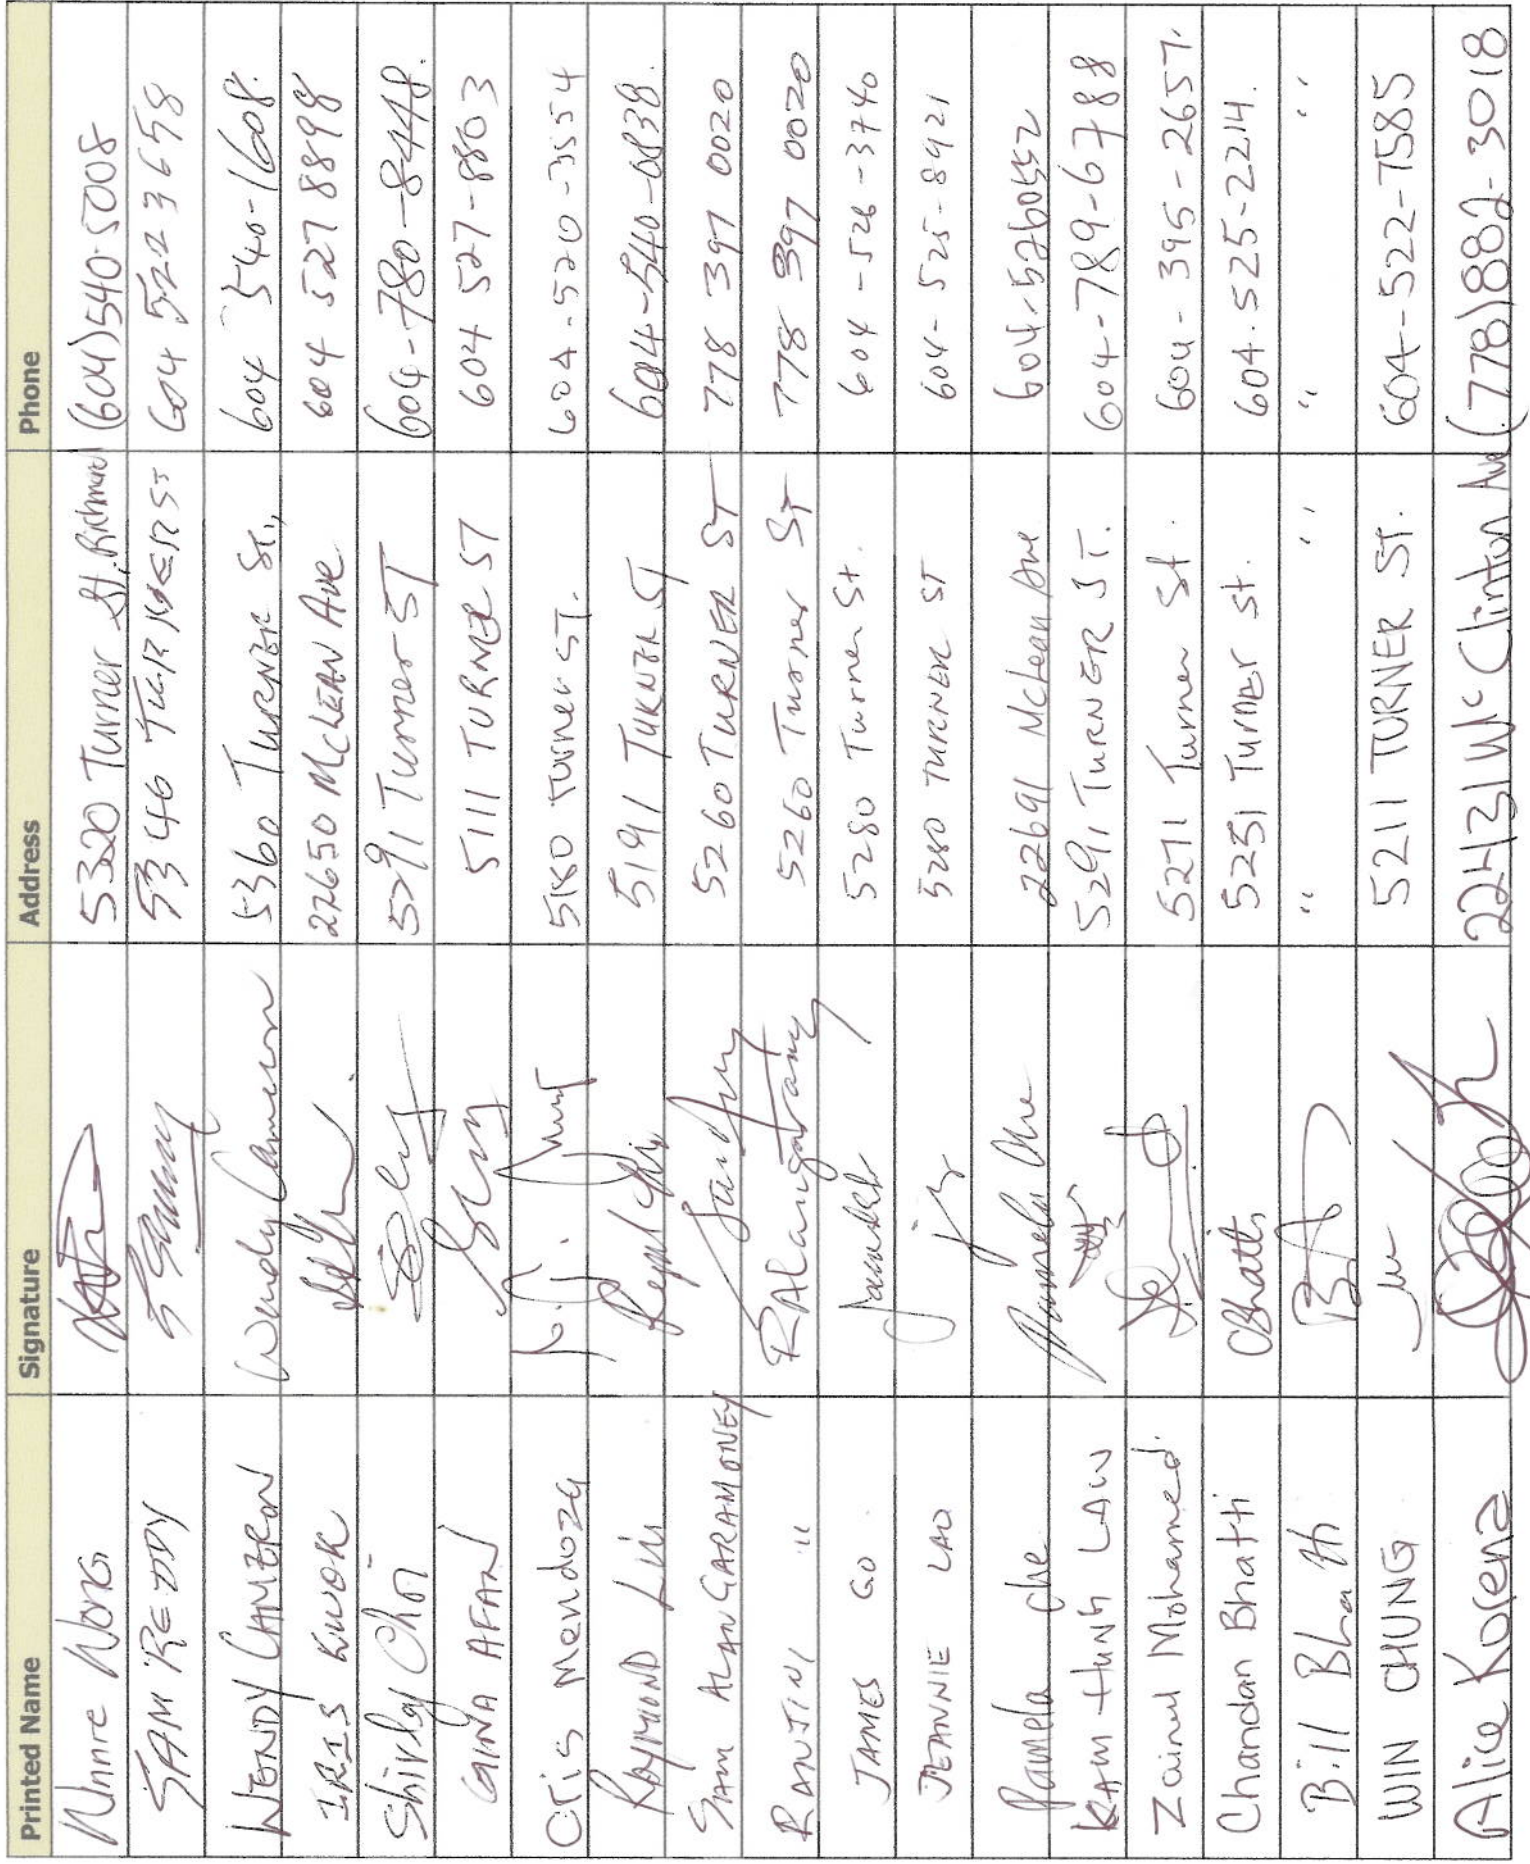 Printed Name Signature Address Phone
Wong 5320 Turner St. Richmond (604) 540-5008
SAM REDDY 5346 TURNER ST 604 522 3658
WENDY CAMERON Wendy Cameron 5360 TURNER St., 604 540-1608.
IRIS KWOK 22650 McLEAN Ave 604 527 8898
Shirley Choi 5291 Turner ST 604-780-8448.
GINA AFAN 5111 TURNER ST 604 527-8803
Cris Mendoza 5180 Turner ST. 604-520-3554
RAYMOND 5191 TURNER ST 604-540-0838.
SAM ALANGARAMONEY 5260 TURNER ST 778 397 0020
RANJINI " 5260 Turner ST 778 397 0020
JAMES GO 5280 Turner St. 604-526-3740
JEANNIE LAO 5280 TURNER ST 604-525-8921
Pamela Che Pamela Che 22691 McLean Ave 604-526
KAM HUNG LAW 5291 TURNER ST. 604-789-6788
Zainul Mohamed. 5271 Turner St. 604-395-2657.
Chandan Bhatti CBhatti 5251 Turner St. 604-525-2214.
Bill " " " "
WIN CHUNG 5211 TURNER ST. 604-522-7585
Alice Korenz 22431 McClinton Ave (778) 882-3018